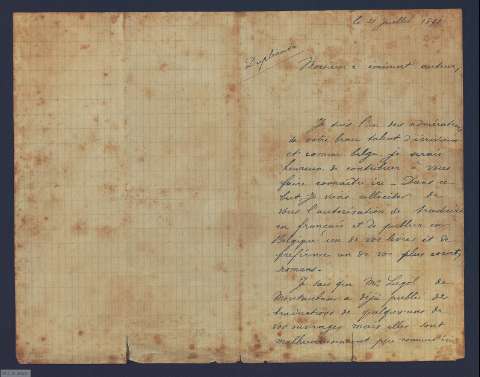 le 21 Juillet 1891
Monsieur & éminent auteur,
Je suis l'un des admirateurs
de votre beau talent d'écrivain
et comme belge je serais
heureux de contribuer à vous
faire connaître ici. Dans ce
but je vous de
vous l'autorisation de traduire
en français et de publier en
Belgique un de vos livres et de
préférence un de vos plus courts
romans.
Je sais que Mr de
Montauban a déjà publié de
traductions de quelques-uns de
vos ouvrages mais elles sont
malheureusement peu